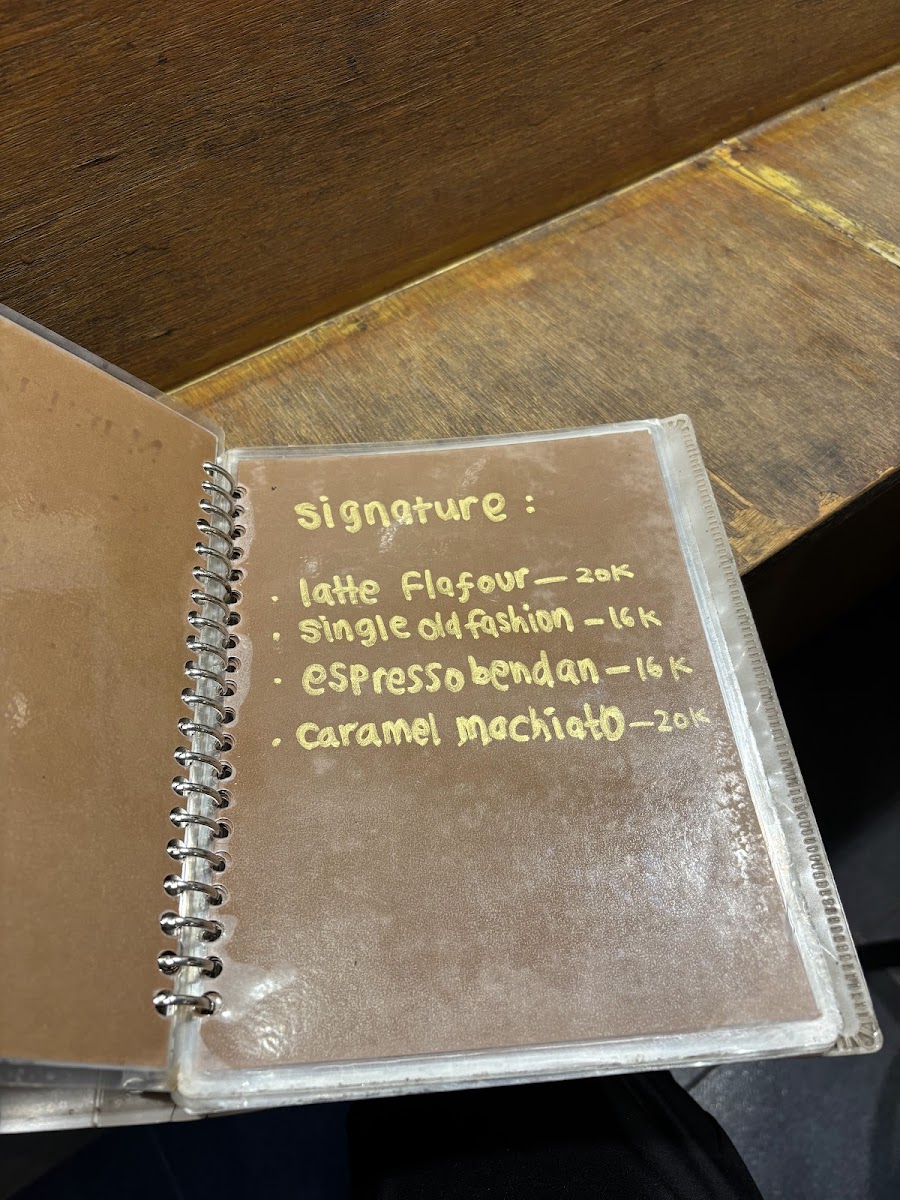 signature :
· latte Flafour — 20K
· single old fashion — 16K
· espresso bendan — 16K
· caramel machiato — 20K